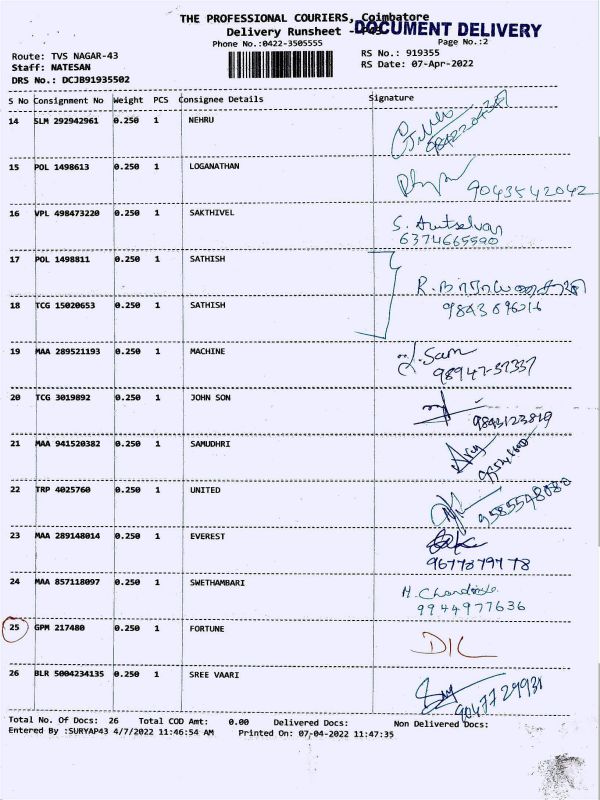 THE PROFESSIONAL COURIERS, Coimbatore
Delivery Runsheet - P43
DOCUMENT DELIVERY
Phone No.:0422-3505555
Page No.:2
Route: TVS NAGAR-43
RS No.: 919355
Staff: NATESAN
RS Date: 07-Apr-2022
DRS No.: DCJB91935502
S No Consignment No Weight PCS Consignee Details Signature
14 SLM 292942961 0.250 1 NEHRU
15 POL 1498613 0.250 1 LOGANATHAN
9043542042
16 VPL 498473220 0.250 1 SAKTHIVEL
S. Arutselvan
6374665590
17 POL 1498811 0.250 1 SATHISH
18 TCG 15020653 0.250 1 SATHISH
19 MAA 289521193 0.250 1 MACHINE
Sam
98947-37337
20 TCG 3019892 0.250 1 JOHN SON
9843123819
21 MAA 941520382 0.250 1 SAMUDHRI
22 TRP 4025760 0.250 1 UNITED
9585548080
23 MAA 289148014 0.250 1 EVEREST
24 MAA 857118097 0.250 1 SWETHAMBARI
9944977636
25 GPM 217480 0.250 1 FORTUNE
26 BLR 5004234135 0.250 1 SREE VAARI
9047729931
Total No. Of Docs: 26 Total COD Amt: 0.00 Delivered Docs: Non Delivered Docs:
Entered By :SURYAP43 4/7/2022 11:46:54 AM Printed On: 07-04-2022 11:47:35